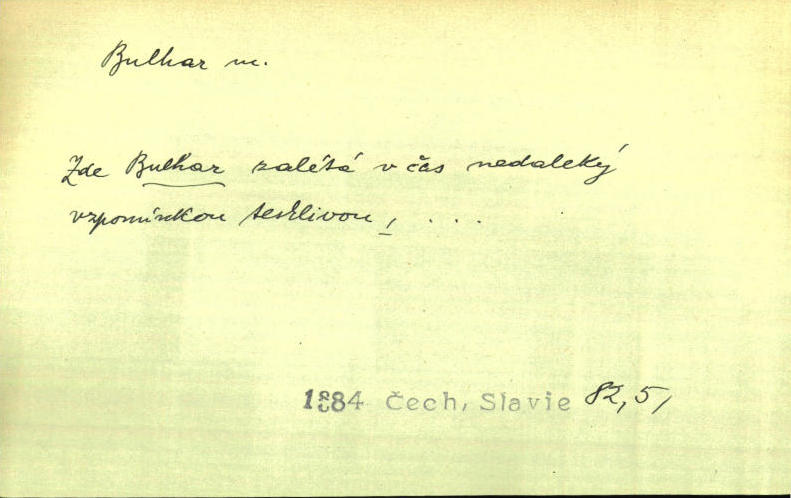 Bulhar m.
Zde Bulhar zalétá v čas nedaleký
vzpomínkou tesklivou, ....
1884 Čech, Slavie 82,5,